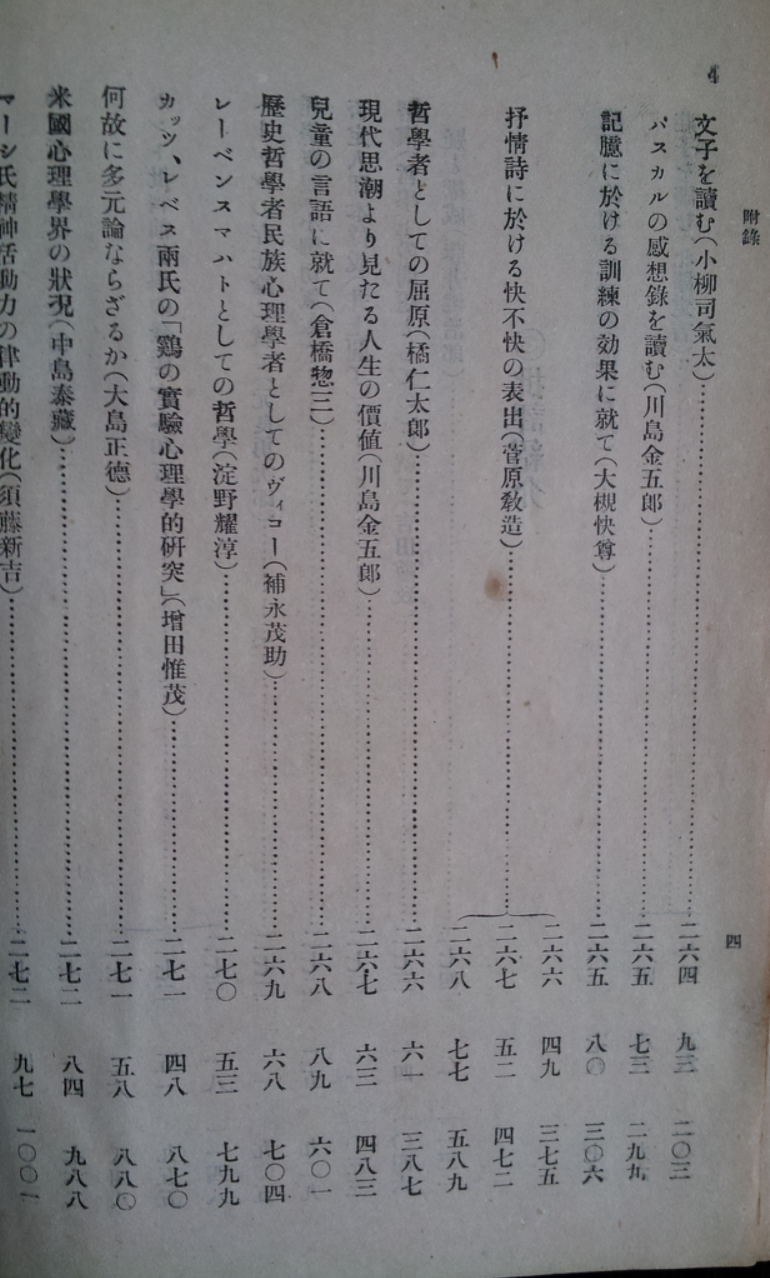 4
附錄
四
文子を讀む(小柳司氣太)……二六四 九三 二〇三
パスカルの感想錄を讀む(川島金五郎)……二六五 七三 二九九
記臆に於ける訓練の効果に就て(大槻快尊)……二六五 八〇 三〇六
抒情詩に於ける快不快の表出(菅原敎造)……
二六六 四九 三七五
二六七 五二 四七二
二六八 七七 五八九
哲學者としての屈原(橘仁太郎)……二六六 六一 三八七
現代思潮より見たる人生の價値(川島金五郎)……二六七 六三 四八三
兒童の言語に就て(倉橋惣三)……二六八 八九 六〇一
歷史哲學者民族心理學者としてのヴィコー(補永茂助)……二六九 六八 七〇四
レーベンスマハトとしての哲學(淀野耀淳)……二七〇 五三 七九九
カッツ、レベス兩氏の「鷄の實驗心理學的硏究」(增田惟茂)……二七一 四八 八七〇
何故に多元論ならざるか(大島正德)……二七一 五八 八八〇
米國心理學界の狀況(中島泰藏)……二七二 八四 九八八
マーシ氏精神活動力の律動的變化(須藤新吉)……二七二 九七 一〇〇一